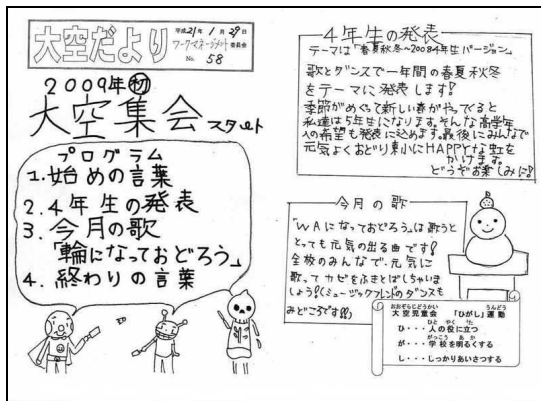 大空だより
平成21年1月29日
ワークマネージメント委員会
No. 58
2009年初
大空集会スタート
プログラム
1.始めの言葉
2.4年生の発表
3.今月の歌
「輪になっておどろう」
4.終わりの言葉
4年生の発表
テーマは「春夏秋冬~2008 4年生バージョン」
歌とダンスで一年間の春夏秋冬
をテーマに発表します!
季節がめぐって新しい春がやってくると
私達は5年生になります。そんな高学年
への希望も発表に込めます。最後にみんなで
元気よくおどり東小にHAPPYな虹を
かけます。
どうぞお楽しみに!
今月の歌
「WAになっておどろう」は歌うと
とっても元気の出る曲です!
全校のみんなで、元気に
歌ってカゼをふきとばしちゃいま
しょう!(ミュージックフレンドのダンスも
みどころです!!)
おおぞらじどうかい うんどう
大空児童会 「ひがし」運動
ひと やく た
ひ・・・人の役に立つ
がっこう あか
が・・・学校を明るくする
し・・・しっかりあいさつする